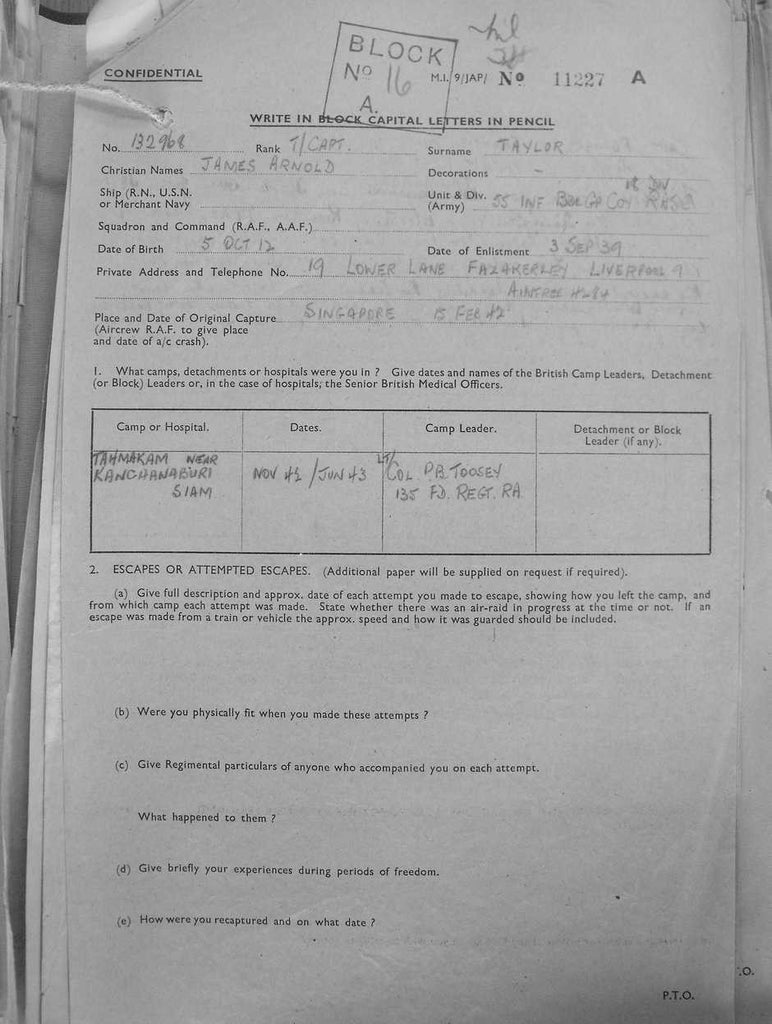 BLOCK
No 16
A.
CONFIDENTIAL
M.I. 9/JAP/ No 11227 A
WRITE IN BLOCK CAPITAL LETTERS IN PENCIL
No. 132968 Rank T/CAPT. Surname TAYLOR
Christian Names JAMES ARNOLD Decorations -
Ship (R.N., U.S.N. or Merchant Navy
Unit & Div. (Army) 55 INF BDE GP COY RASC 18 DIV
Squadron and Command (R.A.F., A.A.F.)
Date of Birth 5 OCT 12 Date of Enlistment 3 SEP 39
Private Address and Telephone No. 19 LOWER LANE FAZAKERLEY LIVERPOOL 9
AINTREE 4284
Place and Date of Original Capture SINGAPORE 15 FEB 42
(Aircrew R.A.F. to give place
and date of a/c crash).
1. What camps, detachments or hospitals were you in ? Give dates and names of the British Camp Leaders, Detachment
(or Block) Leaders or, in the case of hospitals, the Senior British Medical Officers.
Camp or Hospital. Dates. Camp Leader. Detachment or Block
Leader (if any).
TAHMAKAM NEAR
KANCHANABURI
SIAM
NOV 42 / JUN 43
LT/COL P.B. TOOSEY
135 FD. REGT. RA
2. ESCAPES OR ATTEMPTED ESCAPES. (Additional paper will be supplied on request if required).
(a) Give full description and approx. date of each attempt you made to escape, showing how you left the camp, and
from which camp each attempt was made. State whether there was an air-raid in progress at the time or not. If an
escape was made from a train or vehicle the approx. speed and how it was guarded should be included.
(b) Were you physically fit when you made these attempts ?
(c) Give Regimental particulars of anyone who accompanied you on each attempt.
What happened to them ?
(d) Give briefly your experiences during periods of freedom.
(e) How were you recaptured and on what date ?
.O.
P.T.O.